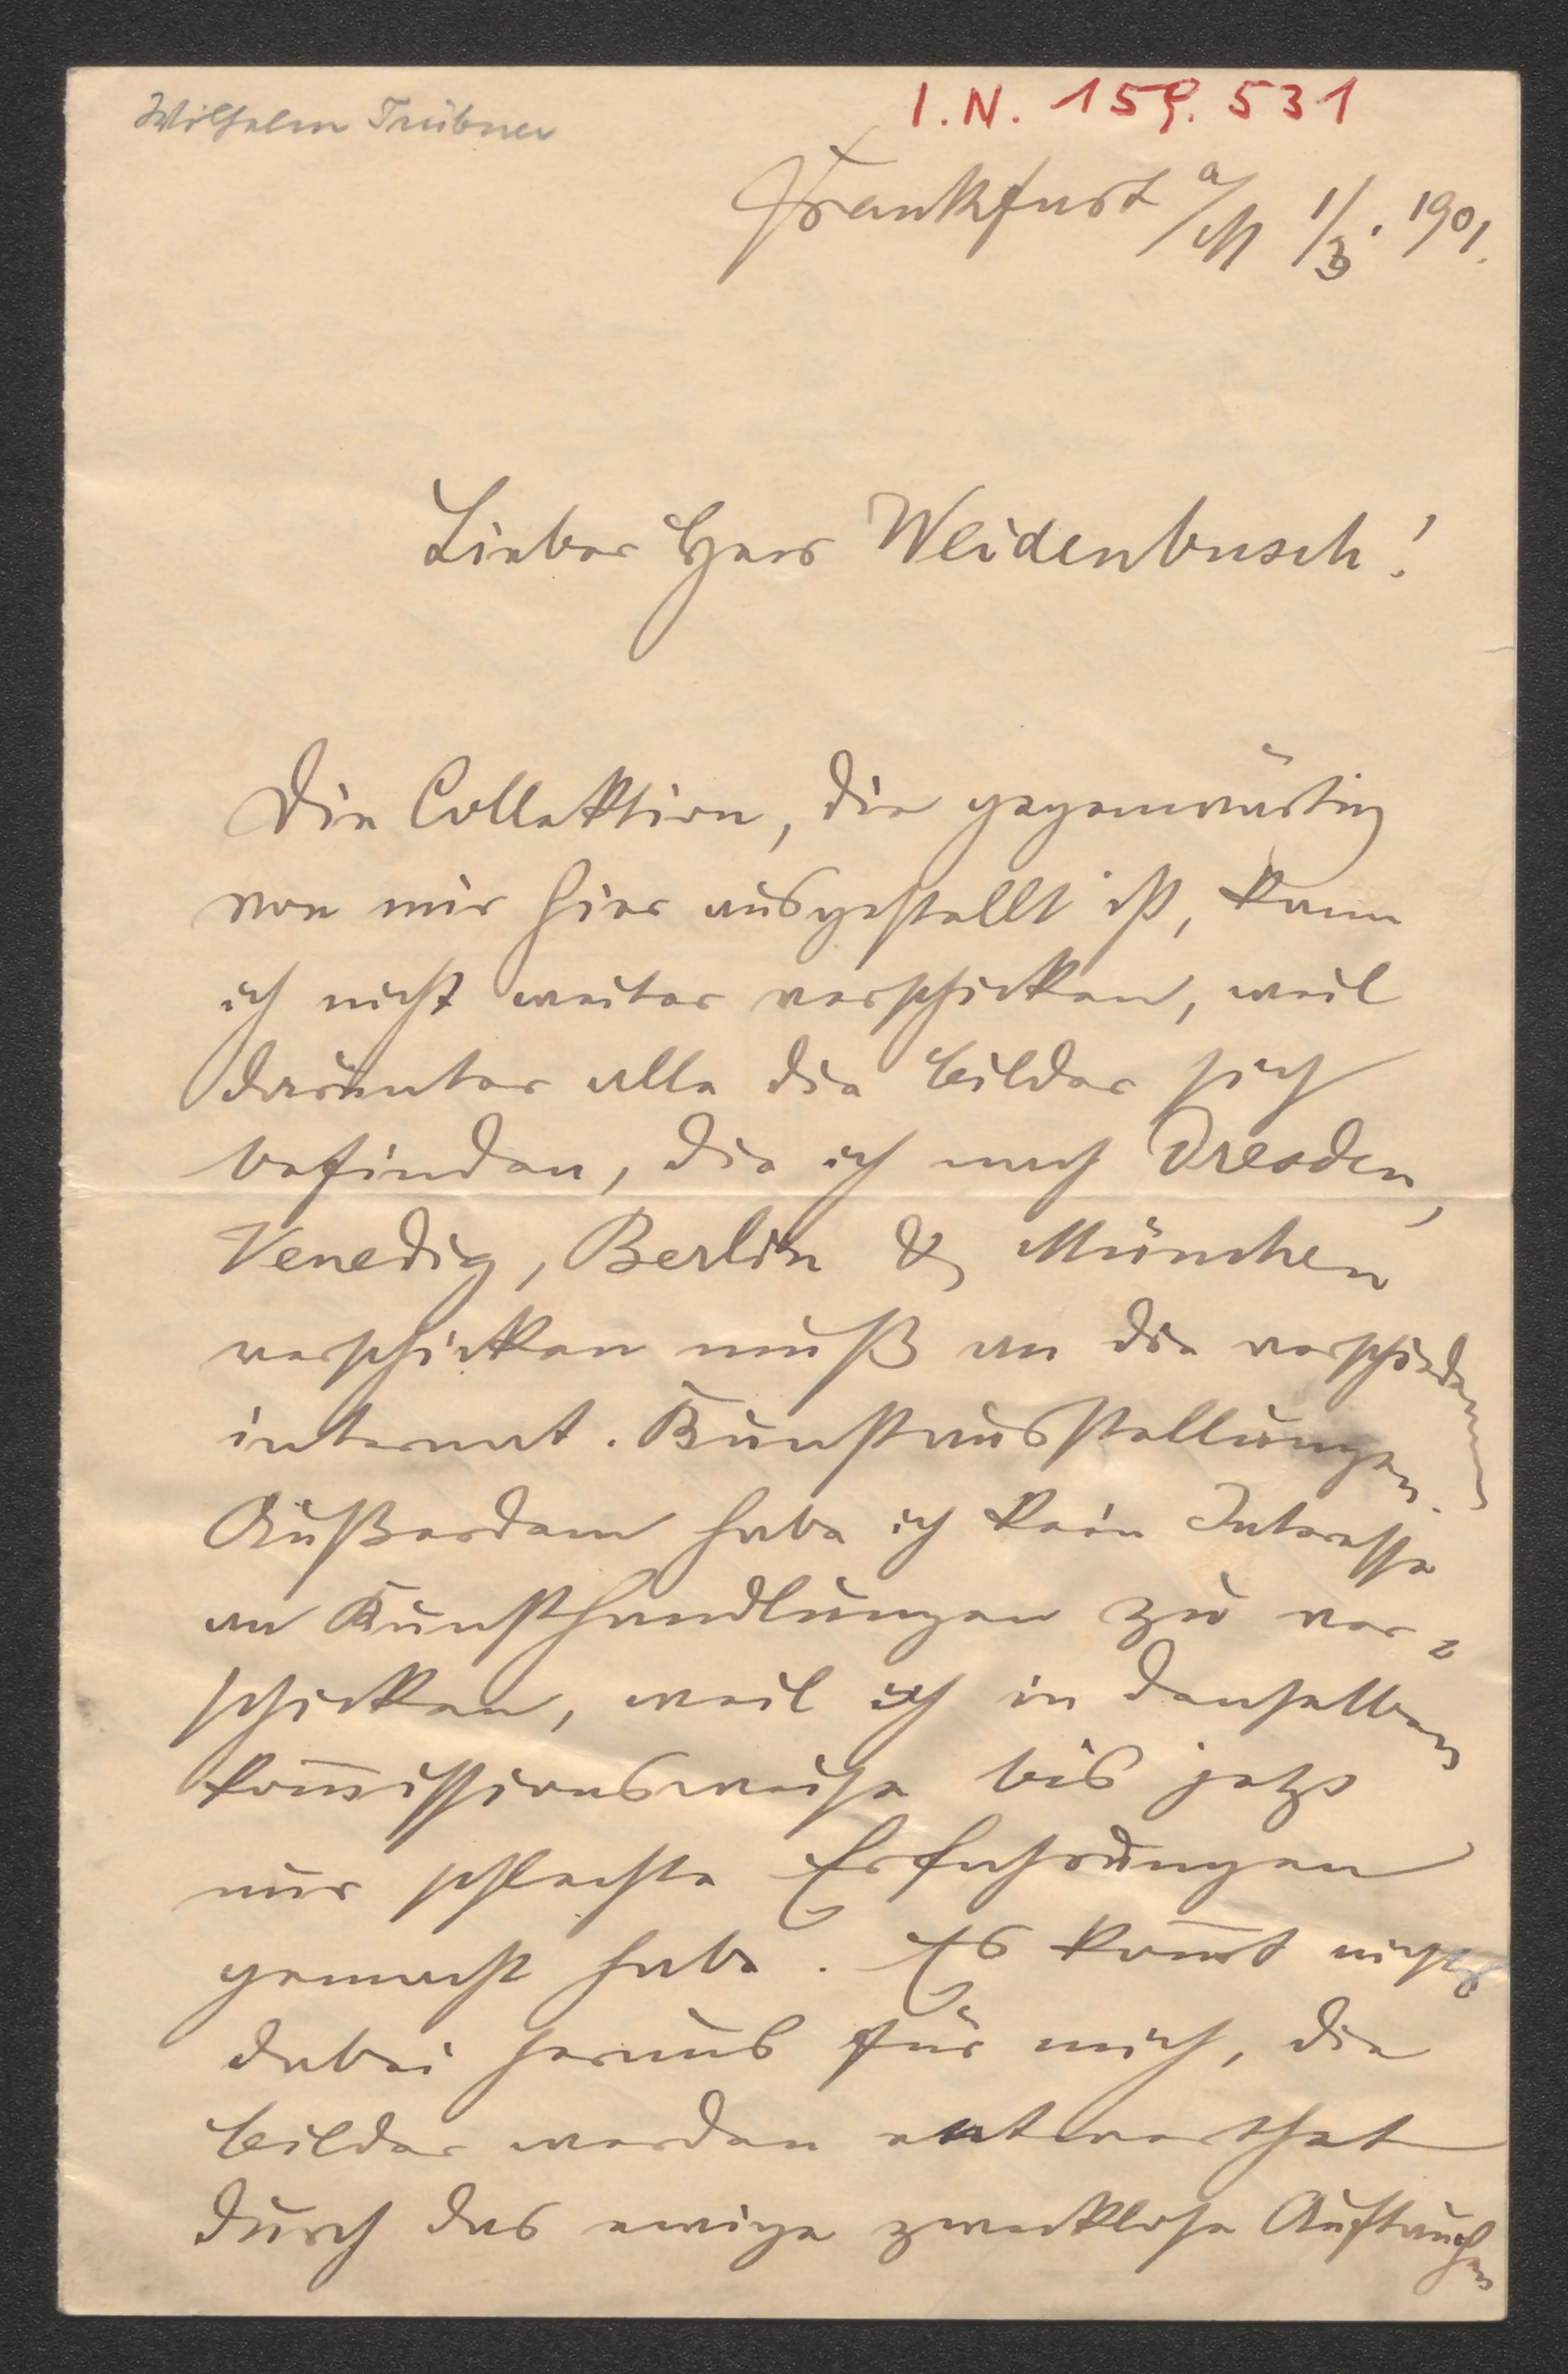 Wilhelm Trübner
I.N. 159.531
Frankfurt a/M 1/3. 1901.
Lieber Herr Weidenbusch!
Die Collektion, die gegenwärtig
von mir hier ausgestellt ist, kann
ich nicht weiter verschicken, weil
darunter alle die Bilder sich
befinden, die ich nach Dresden,
Venedig, Berlin & München
verschicken muß an die verschiedenen
internat. Kunstausstellungen.
Außerdem habe ich kein Interesse
an Kunsthandlungen zu ver-
schicken, weil ich in denselben
kom̅issionsweise bis jetzt
nur schlechte Erfahrungen
gemacht habe. Es kom̅t nichts
dabei heraus für mich, die
Bilder werden entwerthet
durch das ewige zwecklose Auftauchen